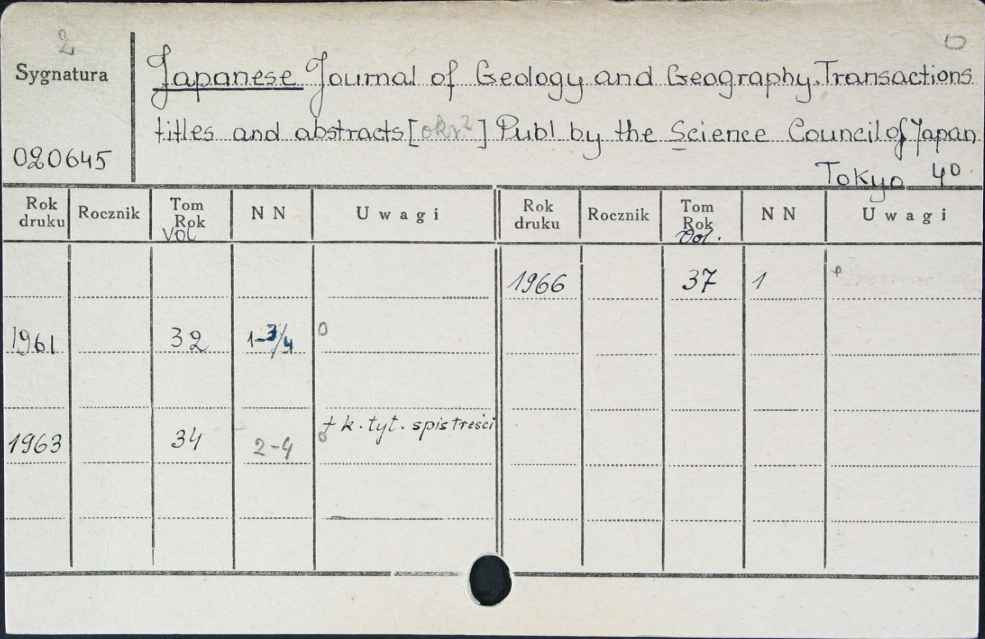 2
Sygnatura
020645
Japanese Journal of Geology and Geography. Transactions
titles and abstracts [okr²] Publ by the Science Council of Japan
Tokyo 4º
Rok druku Rocznik Tom Rok Vol N N Uwagi Rok druku Rocznik Tom Rok Vol. N N Uwagi
1966 37 1
1961 32 1-3/4 0
1963 34 2-4 + k. tyt. spis treści